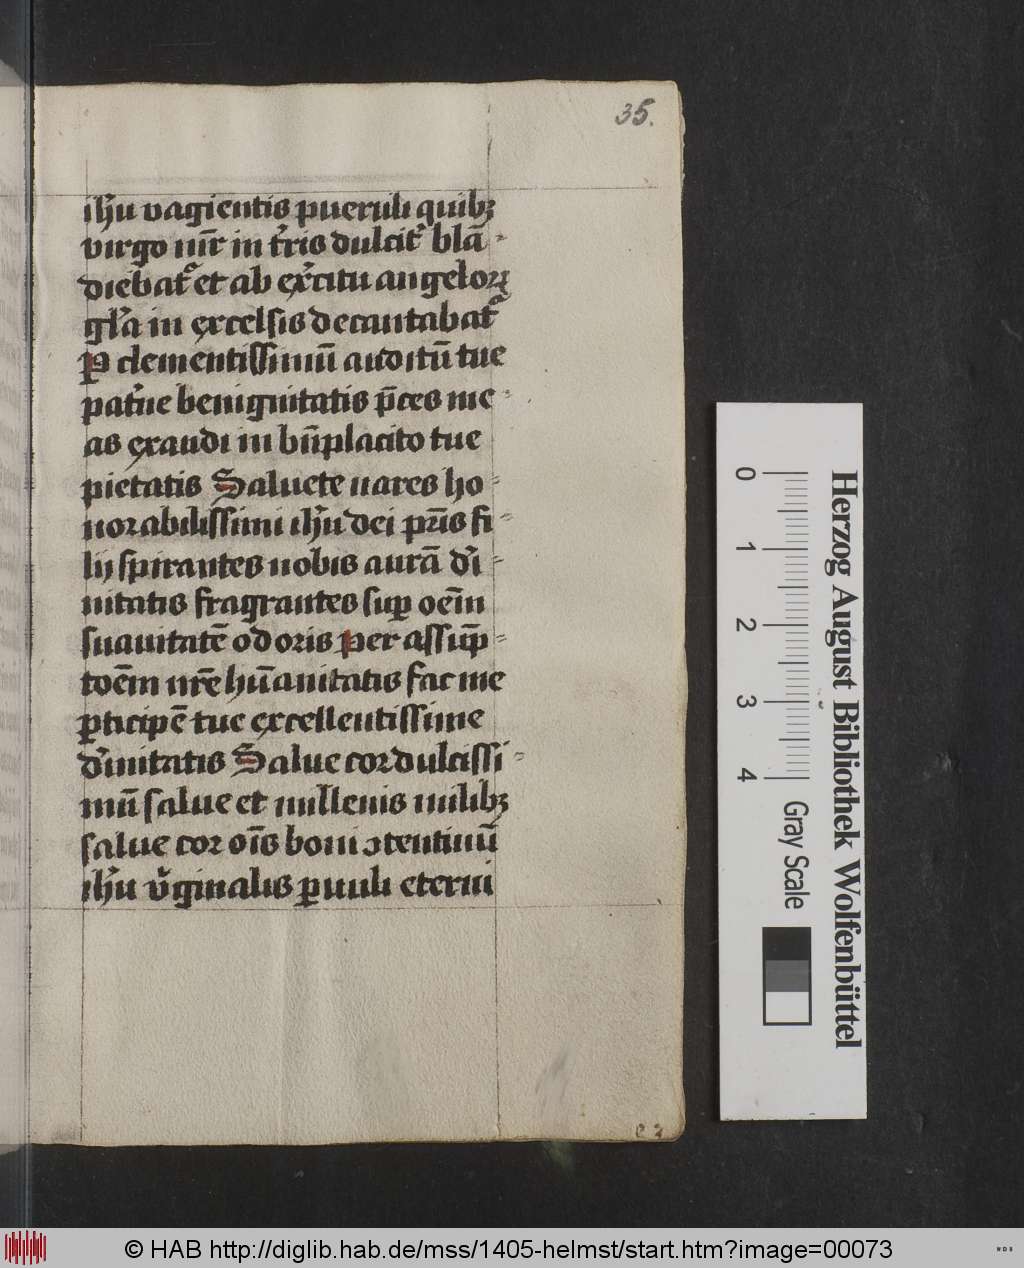 35.
ihu vagientis pueruli quibꝫ
virgo mr̄ in tris dulcit blā
diebat et ab exercitu angeloꝝ
gl'a in excelsis decantabat
P clementissimū auditū tue
pat'ne benignitatis p̄ces me
as exaudi in bn̄placito tue
pietatis Saluete nares ho
norabilissimi ihu dei pr̄is fi
lij spirantes nobis aurā di
nitatis fragrantes suꝑ oēm
suauitatē odoris per assūp
toēm nr̄e hūanitatis fac me
ꝑticipē tue excellentissime
diuinitatis Salue cor dulcissi
mū salue et millenis milibꝫ
salue cor oīs boni ↄtentiuū
ihu v'ginalis ꝑuuli eterni
e 3
0 1 2 3 4
Gray Scale
Herzog August Bibliothek Wolfenbüttel
© HAB http://diglib.hab.de/mss/1405-helmst/start.htm?image=00073